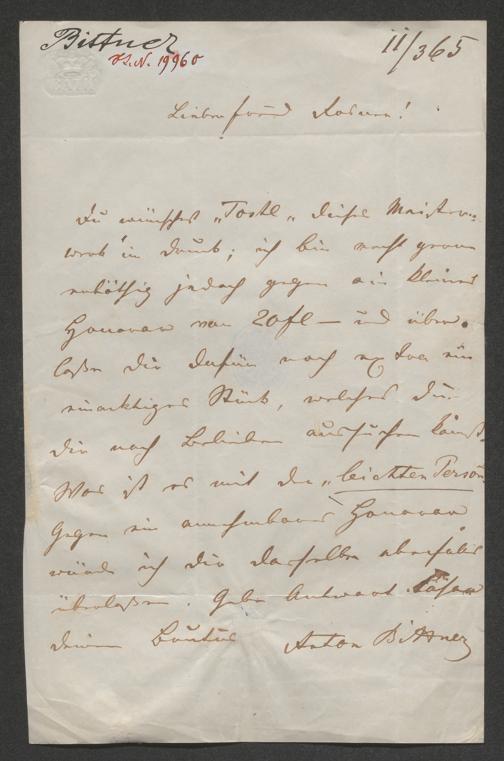 Bittner
I.N. 19960
II/365
Lieber Freund Rosner!
Du wünschest „Tostl„ dieses Meister-
werk in Druck; ich bin recht gerne
erböthig jedoch gegen ein kleines
Honorar von 20 fl – und über
lasse Dir dafür noch extra ein
einacktiges Stück, welches Du
Dir nach Belieben aussuchen kanst.
Was ist es mit der „leichten Person
Gegen ein annehmbares Honorar
würde ich Dir dasselbe ebenfalls
überlassen. Gebe Antwort Cäsar
deinem Brutus Anton Bittner